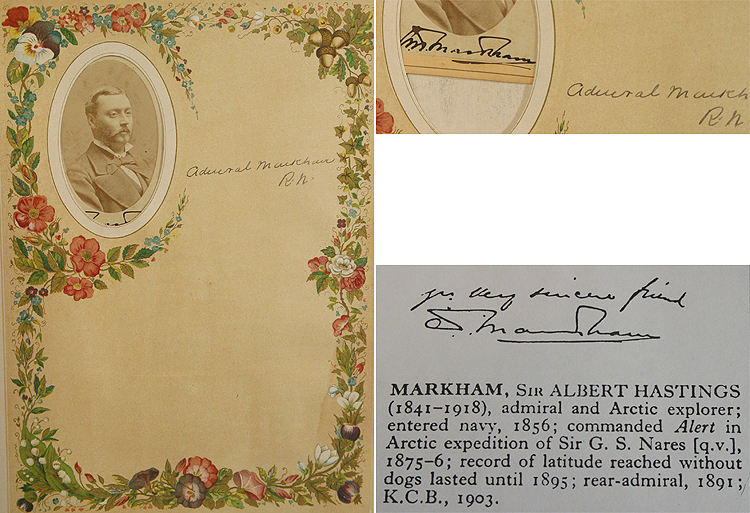 Admiral Markham
R.N.
Markham
Admiral Markh
R.N
yrs. very sincere friend
Markham
MARKHAM, SIR ALBERT HASTINGS
(1841–1918), admiral and Arctic explorer;
entered navy, 1856; commanded Alert in
Arctic expedition of Sir G. S. Nares [q.v.],
1875–6; record of latitude reached without
dogs lasted until 1895; rear-admiral, 1891;
K.C.B., 1903.